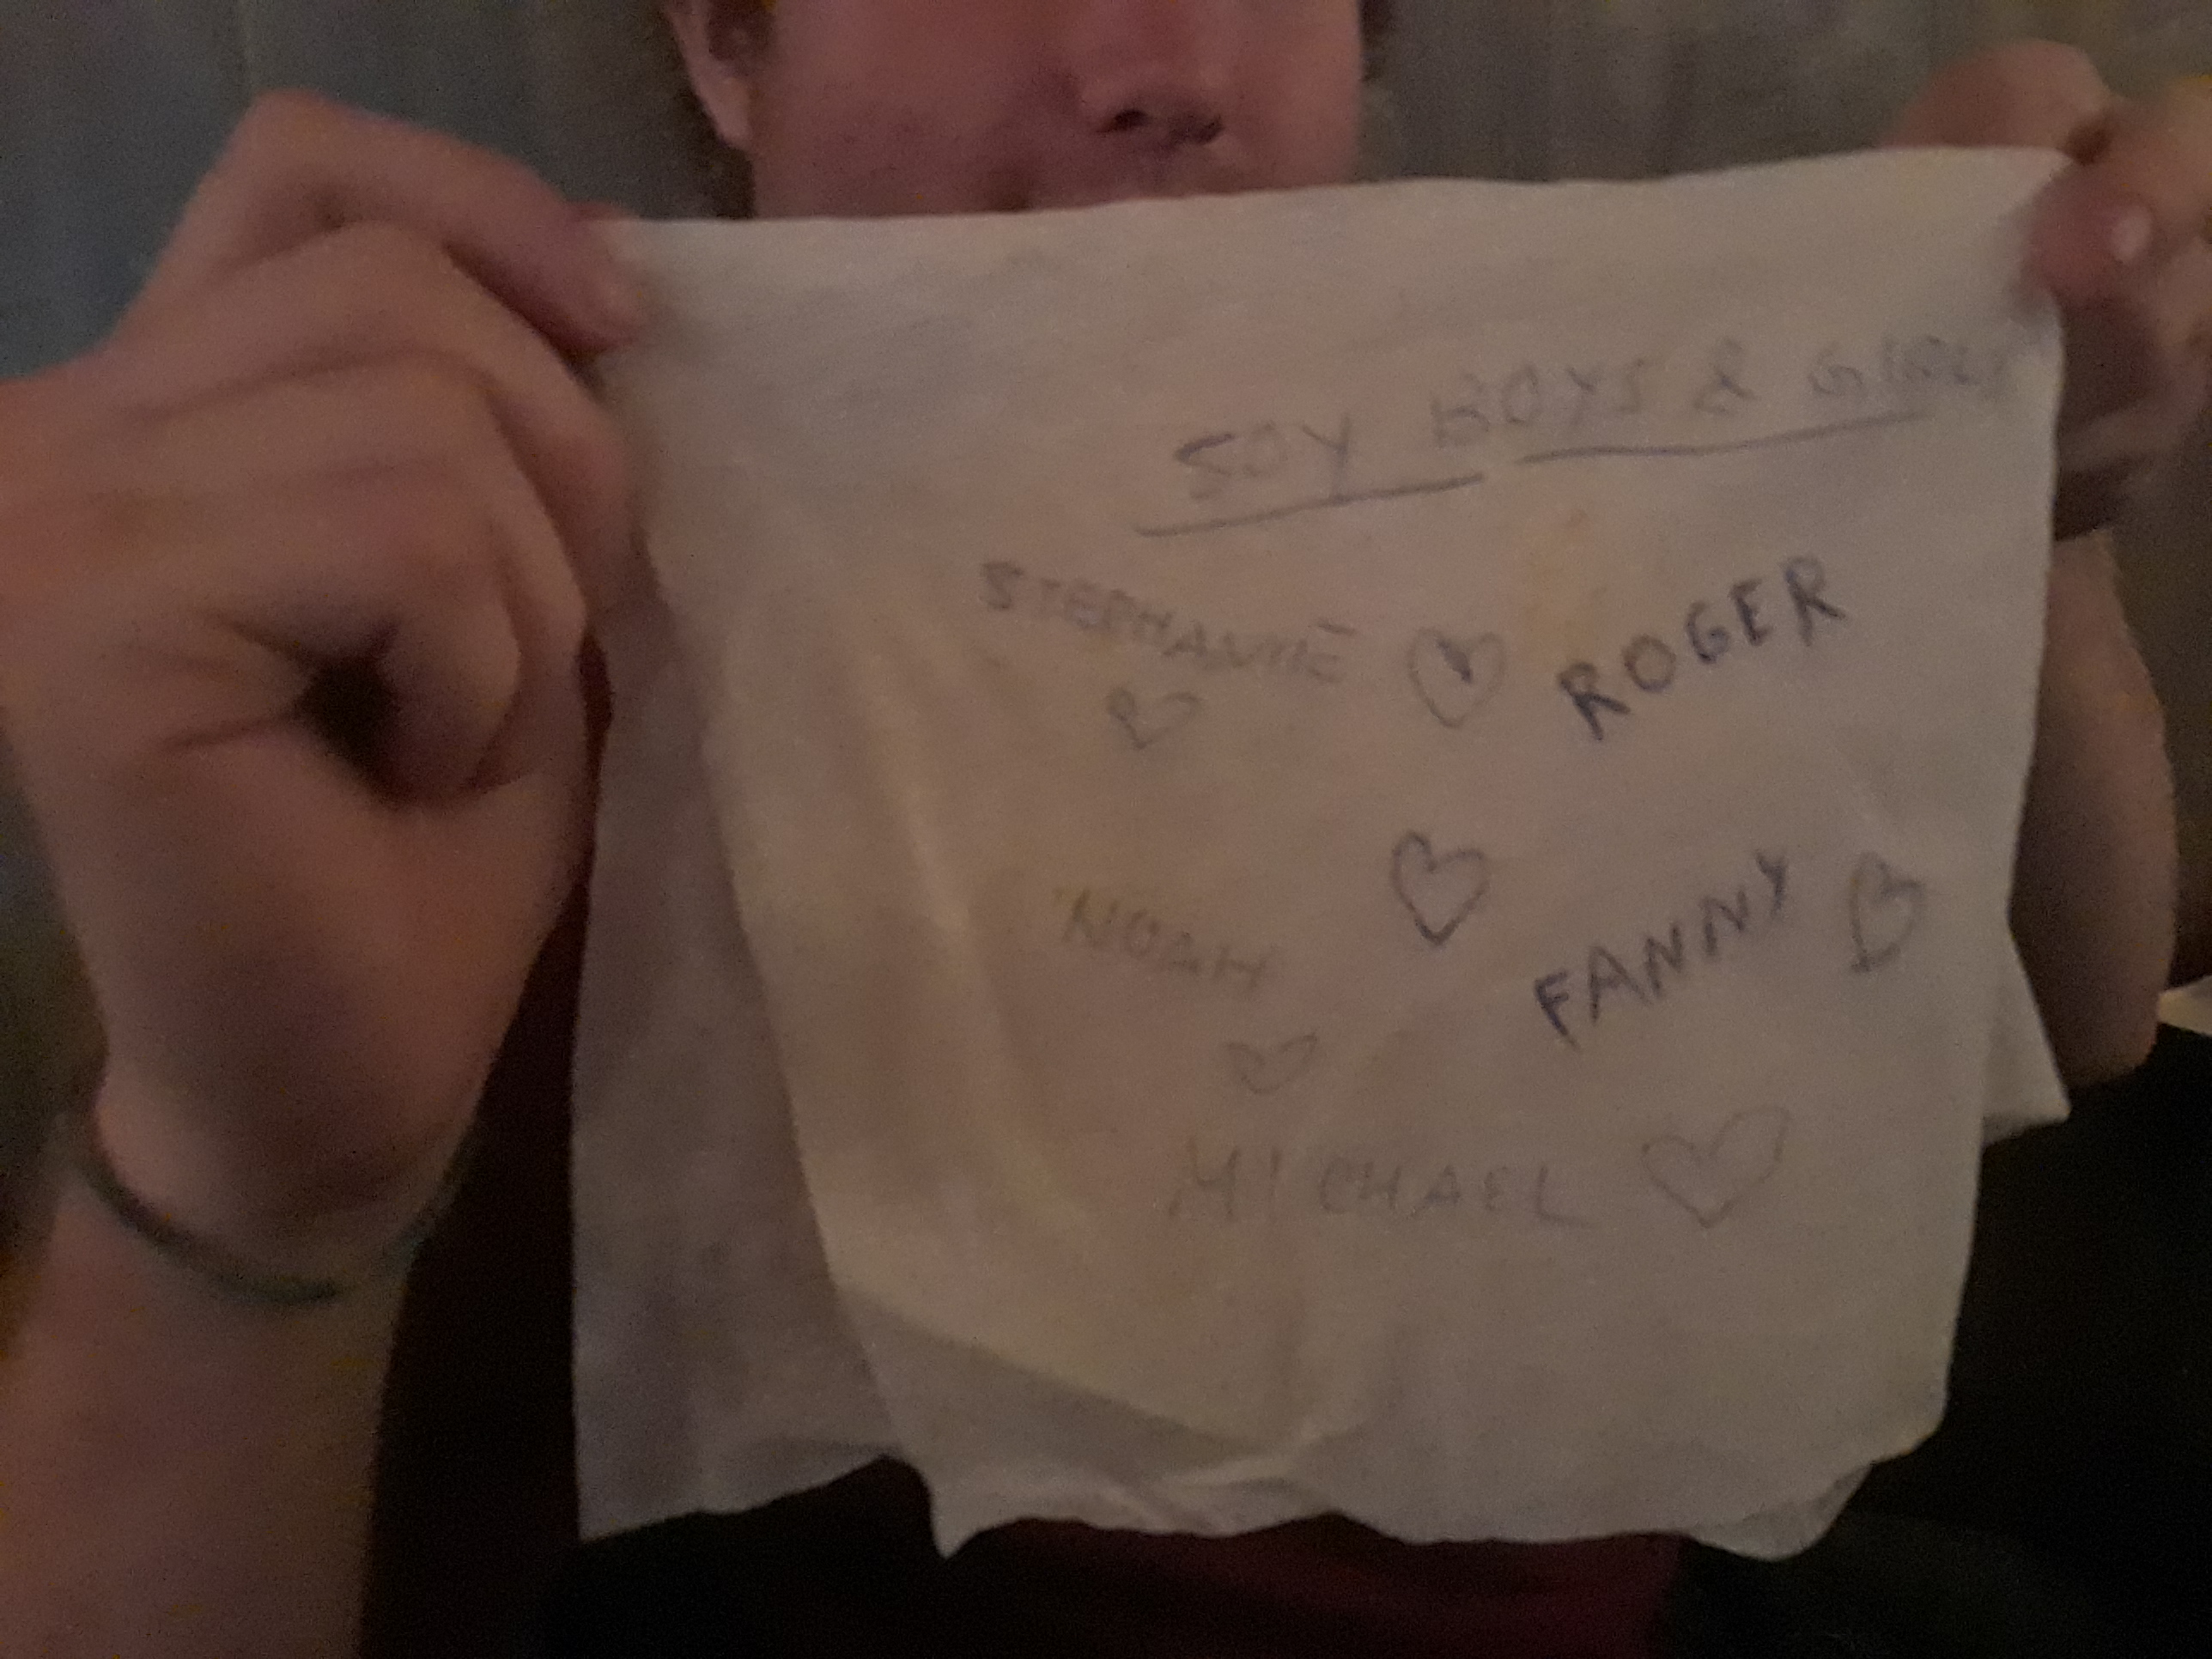 SOY BOYS & GIRLS
STEPHANIE
ROGER
NOAH
FANNY
MICHAEL